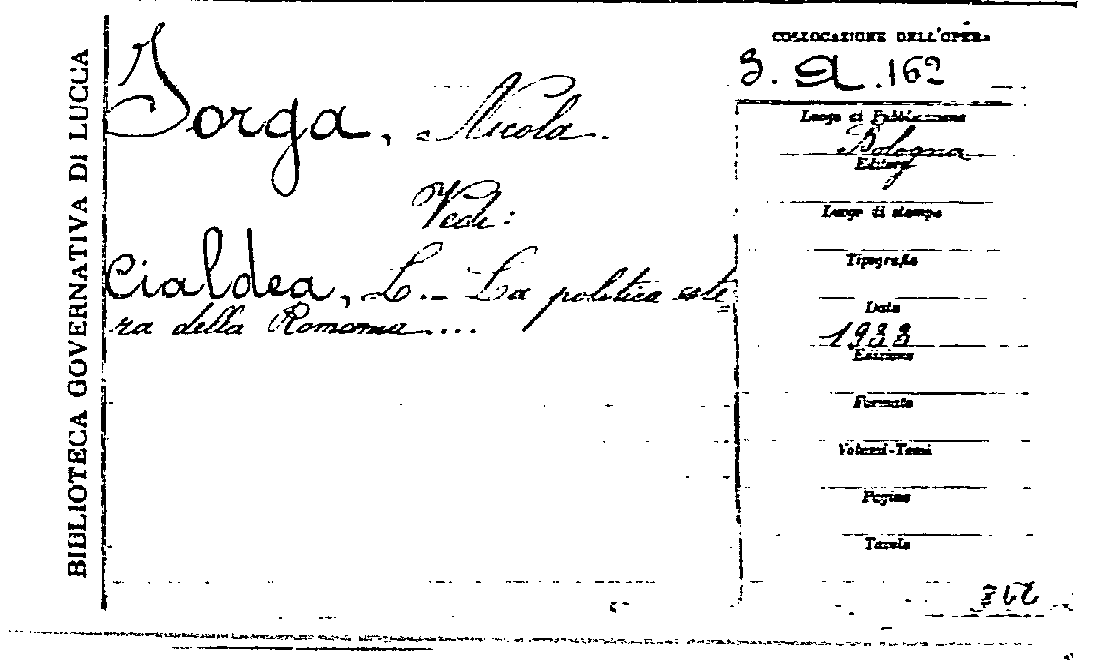 BIBLIOTECA GOVERNATIVA DI LUCCA
Jorga, Nicola.
Vedi:
Cialdea, L. - La politica este
ra della Romania....
COLLOCAZIONE DELL'OPERA
3. a .162
Luogo di Pubblicazione
Bologna
Editore
Luogo di stampa
Tipografia
Data
1933
Edizione
Formato
Volumi-Tomi
Pagine
Tavole